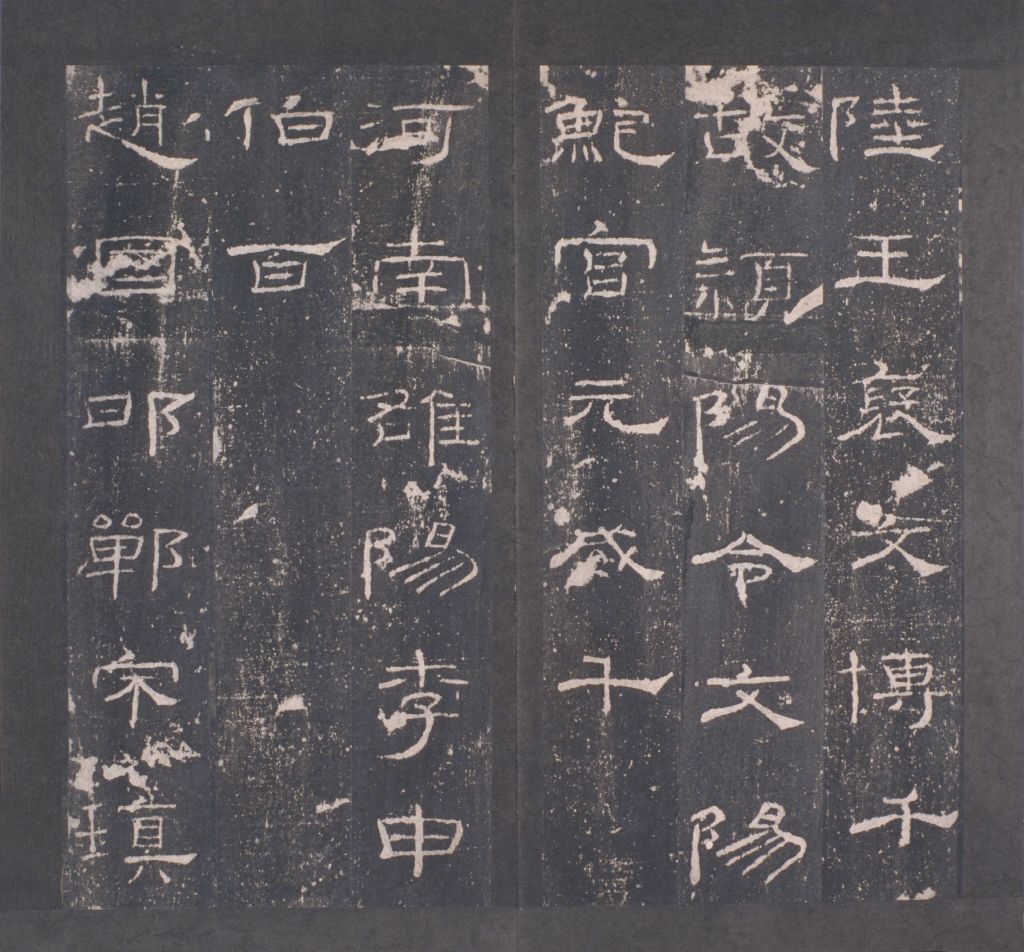 陸王褒文博千
故穎陽令文陽
鮑宮元威千
河南雒陽李申
伯百
趙國邯鄲宋瑱